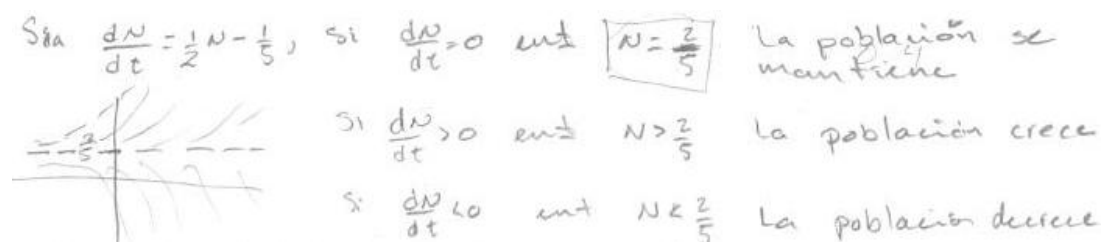 Sea dN/dt = 1/2 N - 1/5, Si dN/dt = 0 ent N = 2/5 La población se mantiene
2/5
Si dN/dt > 0 ent N > 2/5 La población crece
Si dN/dt < 0 ent N < 2/5 La población decrece